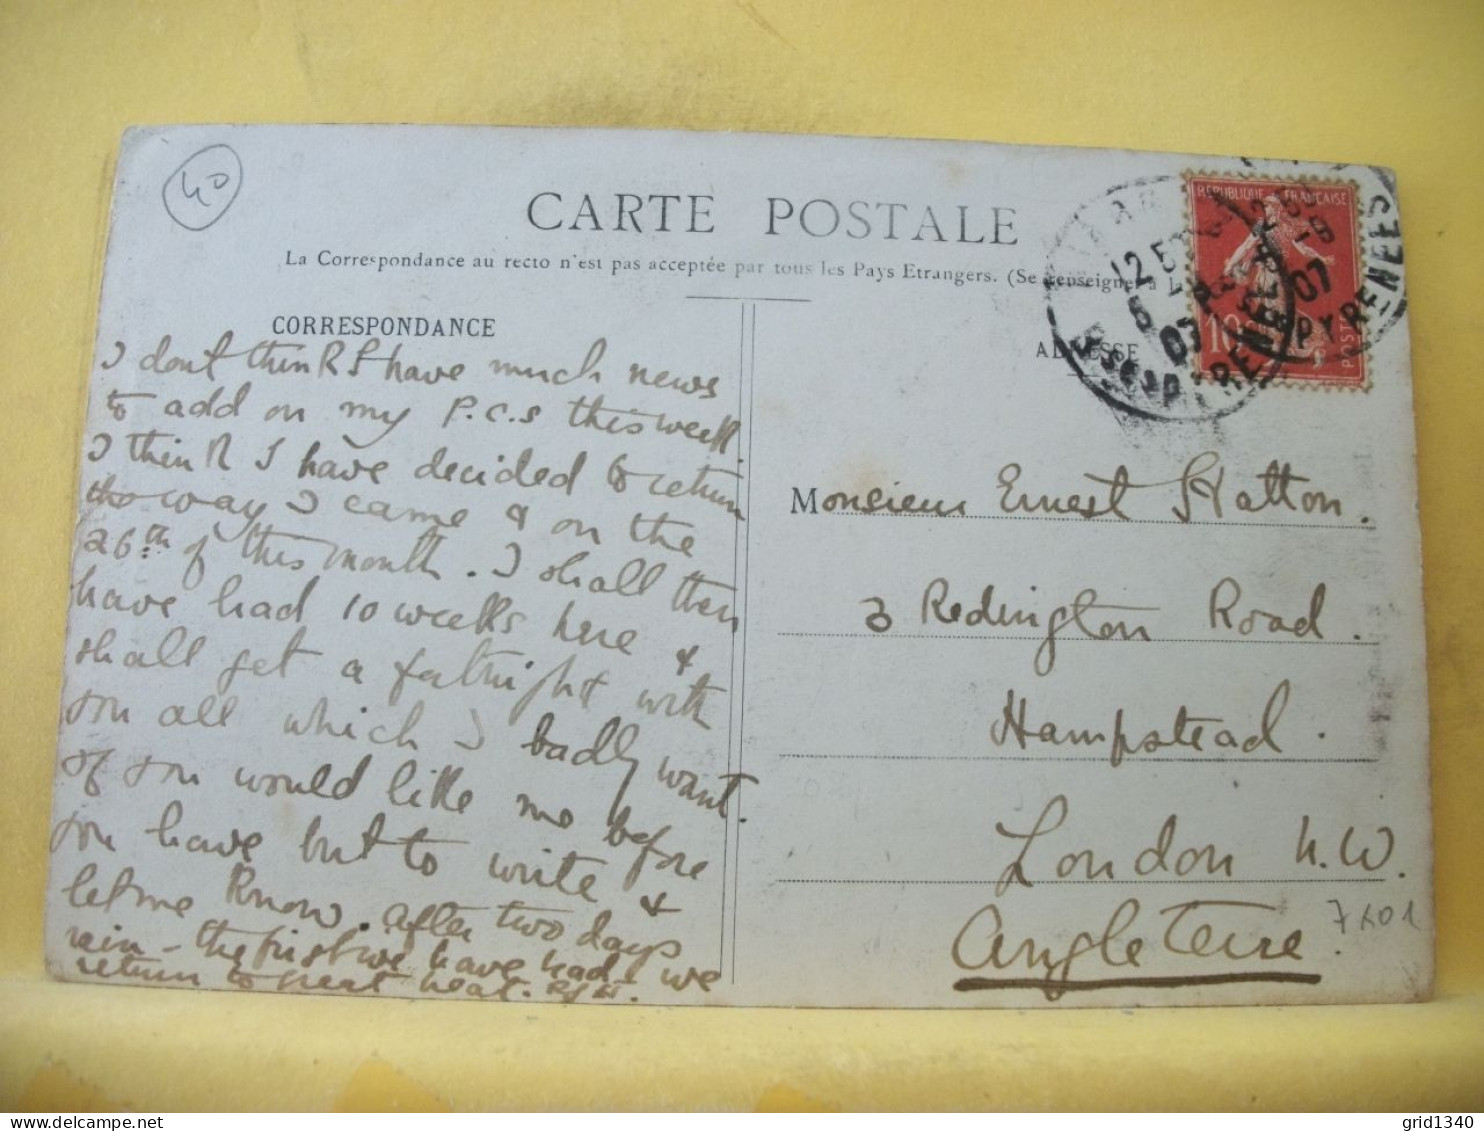 40
CARTE POSTALE
La Correspondance au recto n'est pas acceptée par tous les Pays Etrangers. (Se renseigner à
CORRESPONDANCE
ADRESSE
REPUBLIQUE FRANÇAISE
10
POSTES
12 5
5
07
07
PYRENEES
I dont think I have much news
to add on my p.c.s this week.
I think I have decided to return
the way I came & on the
26th of this month. I shall then
have had 10 weeks here &
shall get a fortnight with
you all which I badly want
if you would like me before.
you have but to write &
let me know. After two days
rain – the first we have had we
return to great heat.
Monsieur Ernest Hatton.
3 Redington Road.
Hampstead.
London N.W.
Angleterre
7401
grid1340